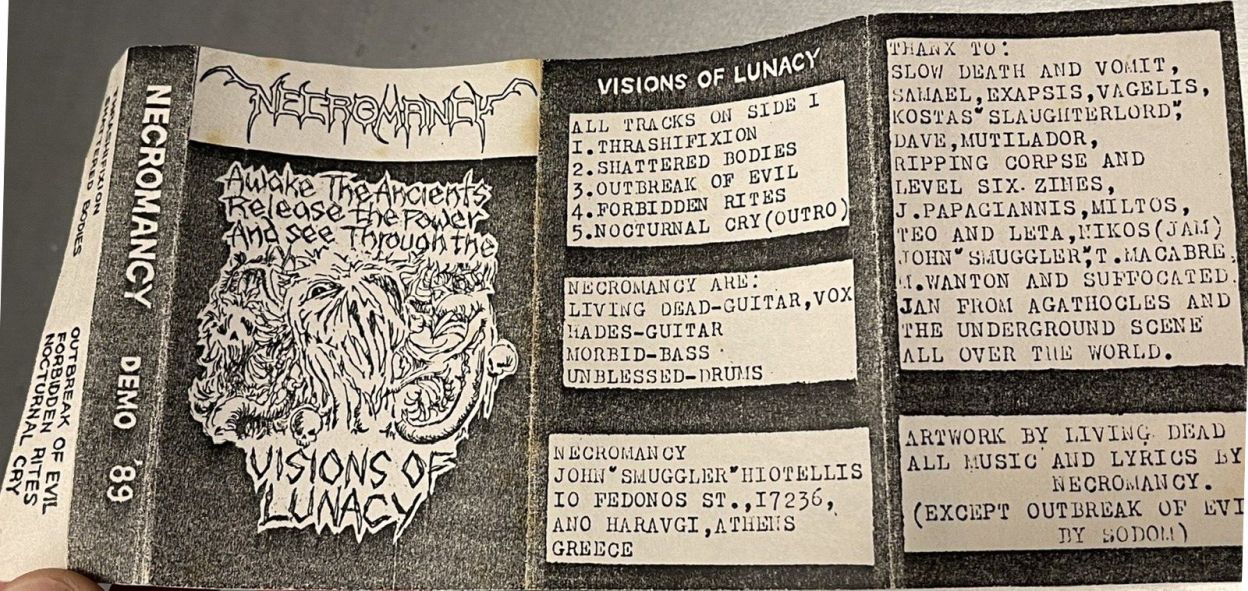 THRASHIFIXION
SHATTERED BODIES
OUTBREAK OF EVIL
FORBIDDEN RITES
NOCTURNAL CRY
NECROMANCY DEMO '89
NECROMANCY
Awake The Ancients
Release the Power
And see Through the
VISIONS OF
LUNACY
VISIONS OF LUNACY
ALL TRACKS ON SIDE I
I.THRASHIFIXION
2.SHATTERED BODIES
3.OUTBREAK OF EVIL
4.FORBIDDEN RITES
5.NOCTURNAL CRY(OUTRO)
NECROMANCY ARE:
LIVING DEAD-GUITAR,VOX
HADES-GUITAR
MORBID-BASS
UNBLESSED-DRUMS
NECROMANCY
JOHN"SMUGGLER"HIOTELLIS
IO FEDONOS ST.,I7236,
ANO HARAVGI,ATHENS
GREECE
THANX TO:
SLOW DEATH AND VOMIT,
SAMAEL,EXAPSIS,VAGELIS,
KOSTAS"SLAUGHTERLORD",
DAVE,MUTILADOR,
RIPPING CORPSE AND
LEVEL SIX.ZINES,
J.PAPAGIANNIS,MILTOS,
TEO AND LETA,NIKOS(JAM)
JOHN"SMUGGLER",T.MACABRE,
.WANTON AND SUFFOCATED.
JAN FROM AGATHOCLES AND
THE UNDERGROUND SCENE
ALL OVER THE WORLD.
ARTWORK BY LIVING DEAD
ALL MUSIC AND LYRICS BY
NECROMANCY.
(EXCEPT OUTBREAK OF EVI
BY SODOM)